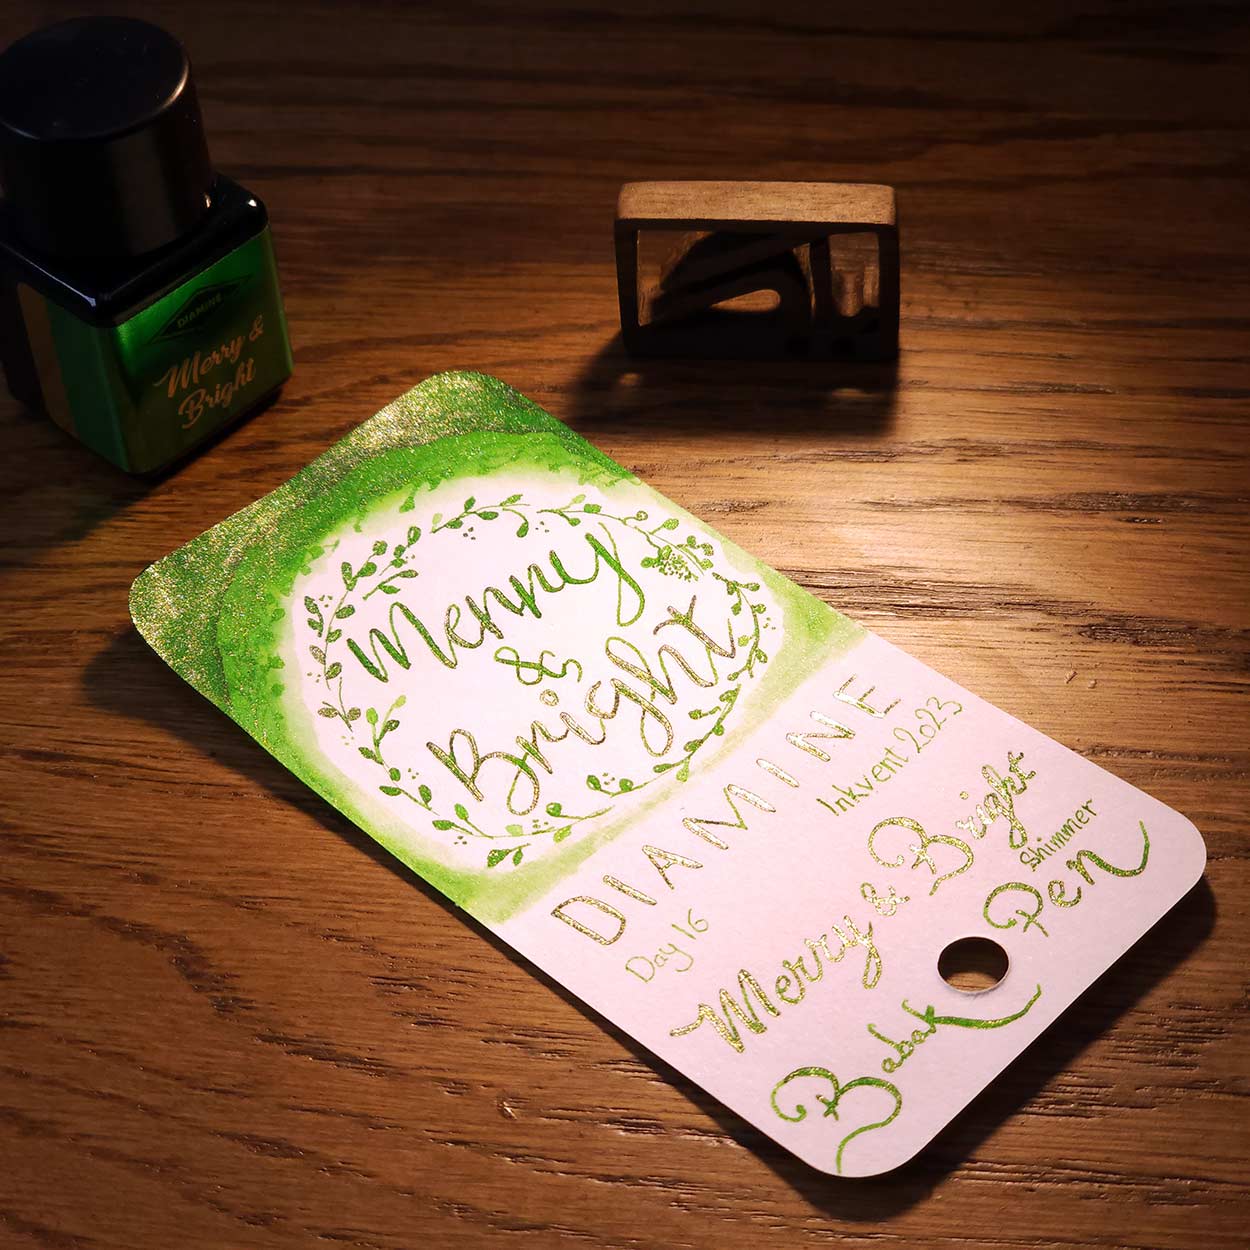 DIAMINE
Merry &
Bright
Merry
&
Bright
DIAMINE
Inkvent 2023
Day 16
Merry & Bright
Shimmer
Babak Pen